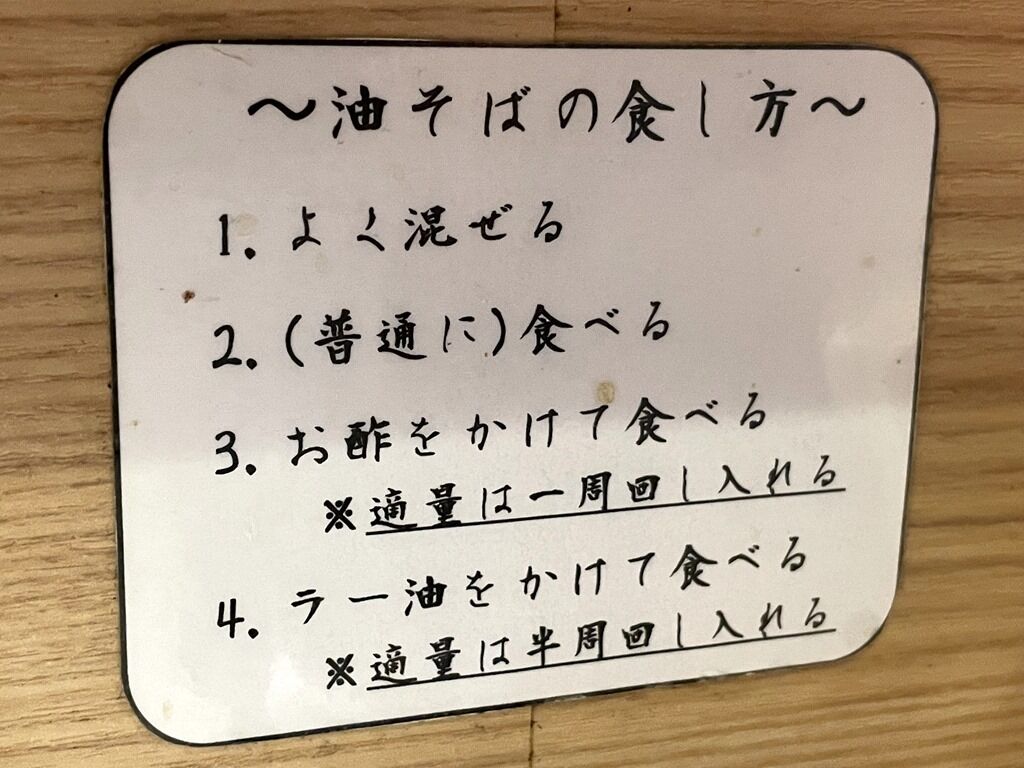 ～油そばの食し方～
1. よく混ぜる
2. (普通に)食べる
3. お酢をかけて食べる
※適量は一周回し入れる
4. ラー油をかけて食べる
※適量は半周回し入れる